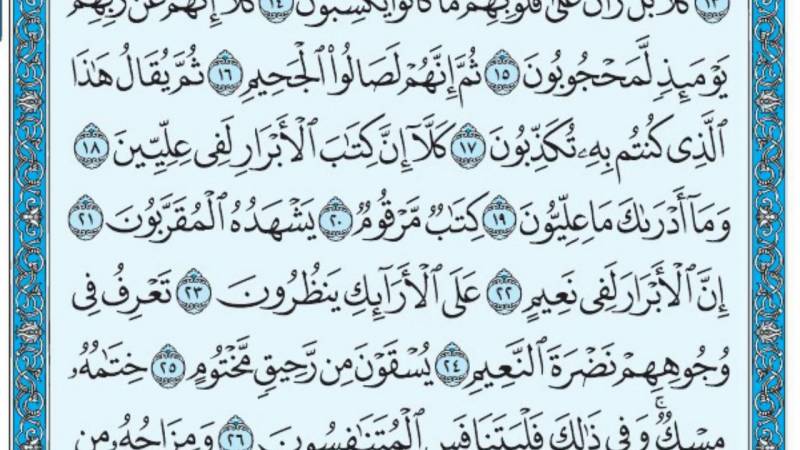 ١٣ كَلَّا بَلْ رَانَ عَلَىٰ قُلُوبِهِمْ مَا كَانُوا۟ يَكْسِبُونَ ١٤ كَلَّآ إِنَّهُمْ عَنْ رَبِّهِمْ
يَوْمَئِذٍ لَّمَحْجُوبُونَ ١٥ ثُمَّ إِنَّهُمْ لَصَالُوا۟ ٱلْجَحِيمِ ١٦ ثُمَّ يُقَالُ هَٰذَا
ٱلَّذِى كُنتُم بِهِۦ تُكَذِّبُونَ ١٧ كَلَّآ إِنَّ كِتَٰبَ ٱلْأَبْرَارِ لَفِى عِلِّيِّينَ ١٨
وَمَآ أَدْرَىٰكَ مَا عِلِّيُّونَ ١٩ كِتَٰبٌ مَّرْقُومٌ ٢٠ يَشْهَدُهُ ٱلْمُقَرَّبُونَ ٢١
إِنَّ ٱلْأَبْرَارَ لَفِى نَعِيمٍ ٢٢ عَلَى ٱلْأَرَآئِكِ يَنظُرُونَ ٢٣ تَعْرِفُ فِى
وُجُوهِهِمْ نَضْرَةَ ٱلنَّعِيمِ ٢٤ يُسْقَوْنَ مِن رَّحِيقٍ مَّخْتُومٍ ٢٥ خِتَٰمُهُۥ
مِسْكٌ ۚ وَفِى ذَٰلِكَ فَلْيَتَنَافَسِ ٱلْمُتَنَٰفِسُونَ ٢٦ وَمِزَاجُهُۥ مِن